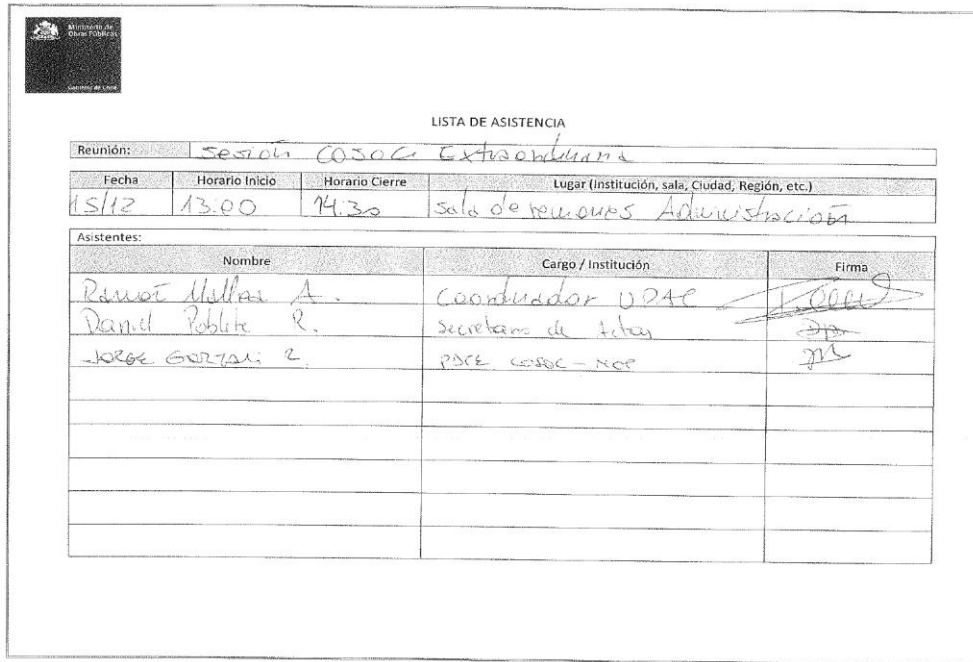 Ministerio de
Obras Públicas
Gobierno de Chile
LISTA DE ASISTENCIA
Reunión: Sesión COSOC Extraordinaria
Fecha Horario Inicio Horario Cierre Lugar (Institución, sala, Ciudad, Región, etc.)
15/12 13:00 14:30 Sala de reuniones Administración
Asistentes:
Nombre Cargo / Institución Firma
A. Coordinador
Daniel Poblete R. Secretario de Actas
JORGE COSOC - MOP